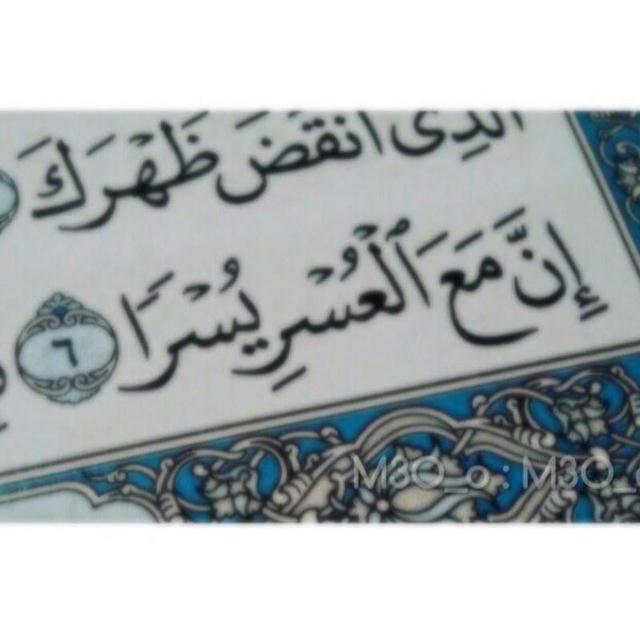 الَّذِى أَنقَضَ ظَهْرَكَ
إِنَّ مَعَ ٱلْعُسْرِ يُسْرًا ٦
M3O_o : M3O_o